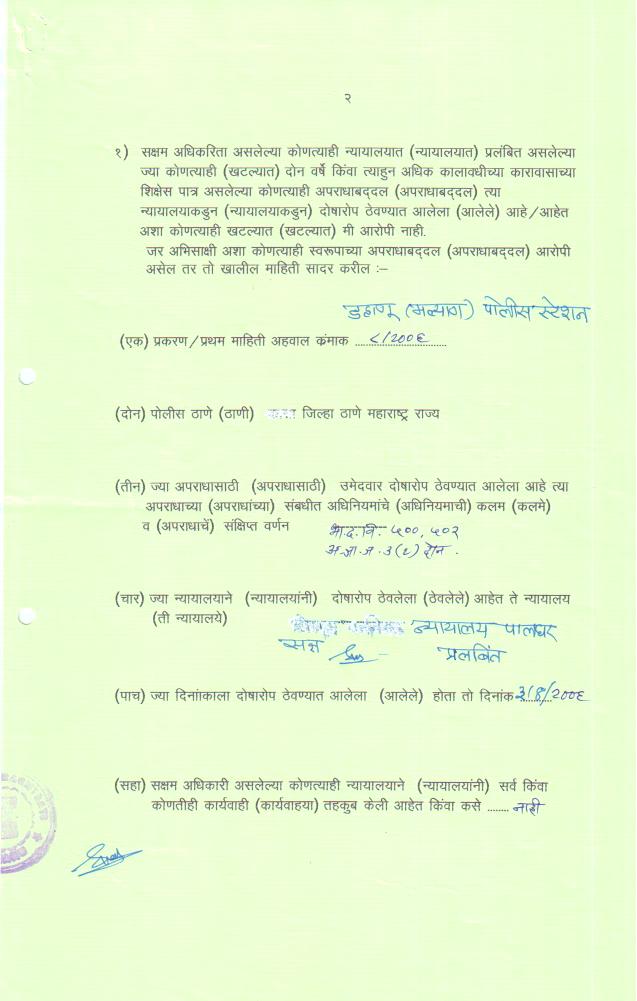 २
१) सक्षम अधिकरिता असलेल्या कोणत्याही न्यायालयात (न्यायालयात) प्रलंबित असलेल्या
ज्या कोणत्याही (खटल्यात) दोन वर्षे किंवा त्याहुन अधिक कालावधीच्या कारावासाच्या
शिक्षेस पात्र असलेल्या कोणत्याही अपराधाबददल (अपराधाबददल) त्या
न्यायालयाकडुन (न्यायालयाकडुन) दोषारोप ठेवण्यात आलेला (आलेले) आहे/आहेत
अशा कोणत्याही खटल्यात (खटल्यात) मी आरोपी नाही.
जर अभिसाक्षी अशा कोणत्याही स्वरूपाच्या अपराधाबददल (अपराधाबददल) आरोपी
असेल तर तो खालील माहिती सादर करील :–
डहाणू पोलीस स्टेशन
(एक) प्रकरण/प्रथम माहिती अहवाल कंमाक ८/२००६
(दोन) पोलीस ठाणे (ठाणी) जिल्हा ठाणे महाराष्ट्र राज्य
(तीन) ज्या अपराधासाठी (अपराधासाठी) उमेदवार दोषारोप ठेवण्यात आलेला आहे त्या
अपराधाच्या (अपराधांच्या) संबधीत अधिनियमांचे (अधिनियमाची) कलम (कलमे)
व (अपराधाचें) संक्षिप्त वर्णन भा.द.वि. ५००, ५०२
अ.जा.ज. ३(१) दोन.
(चार) ज्या न्यायालयाने (न्यायालयांनी) दोषारोप ठेवलेला (ठेवलेले) आहेत ते न्यायालय
(ती न्यायालये) न्यायालय पालघर
सत्र प्रलंबित
(पाच) ज्या दिनांाकाला दोषारोप ठेवण्यात आलेला (आलेले) होता तो दिनांक २००६
(सहा) सक्षम अधिकारी असलेल्या कोणत्याही न्यायालयाने (न्यायालयांनी) सर्व किंवा
कोणतीही कार्यवाही (कार्यवाहया) तहकुब केली आहेत किंवा कसे ........ नाही